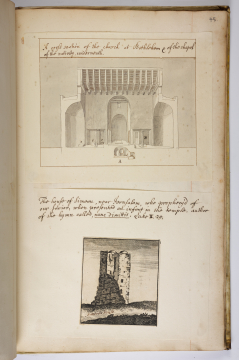 44
A cross section of the church at Bethlehem & of the chapel
of the nativity underneath.
The house of Simeon, near Jerusalem, who prophesied of
our Saviour, when presented an infant in the temple, author
of the hymn called nunc dimittis. Luke II. 29.